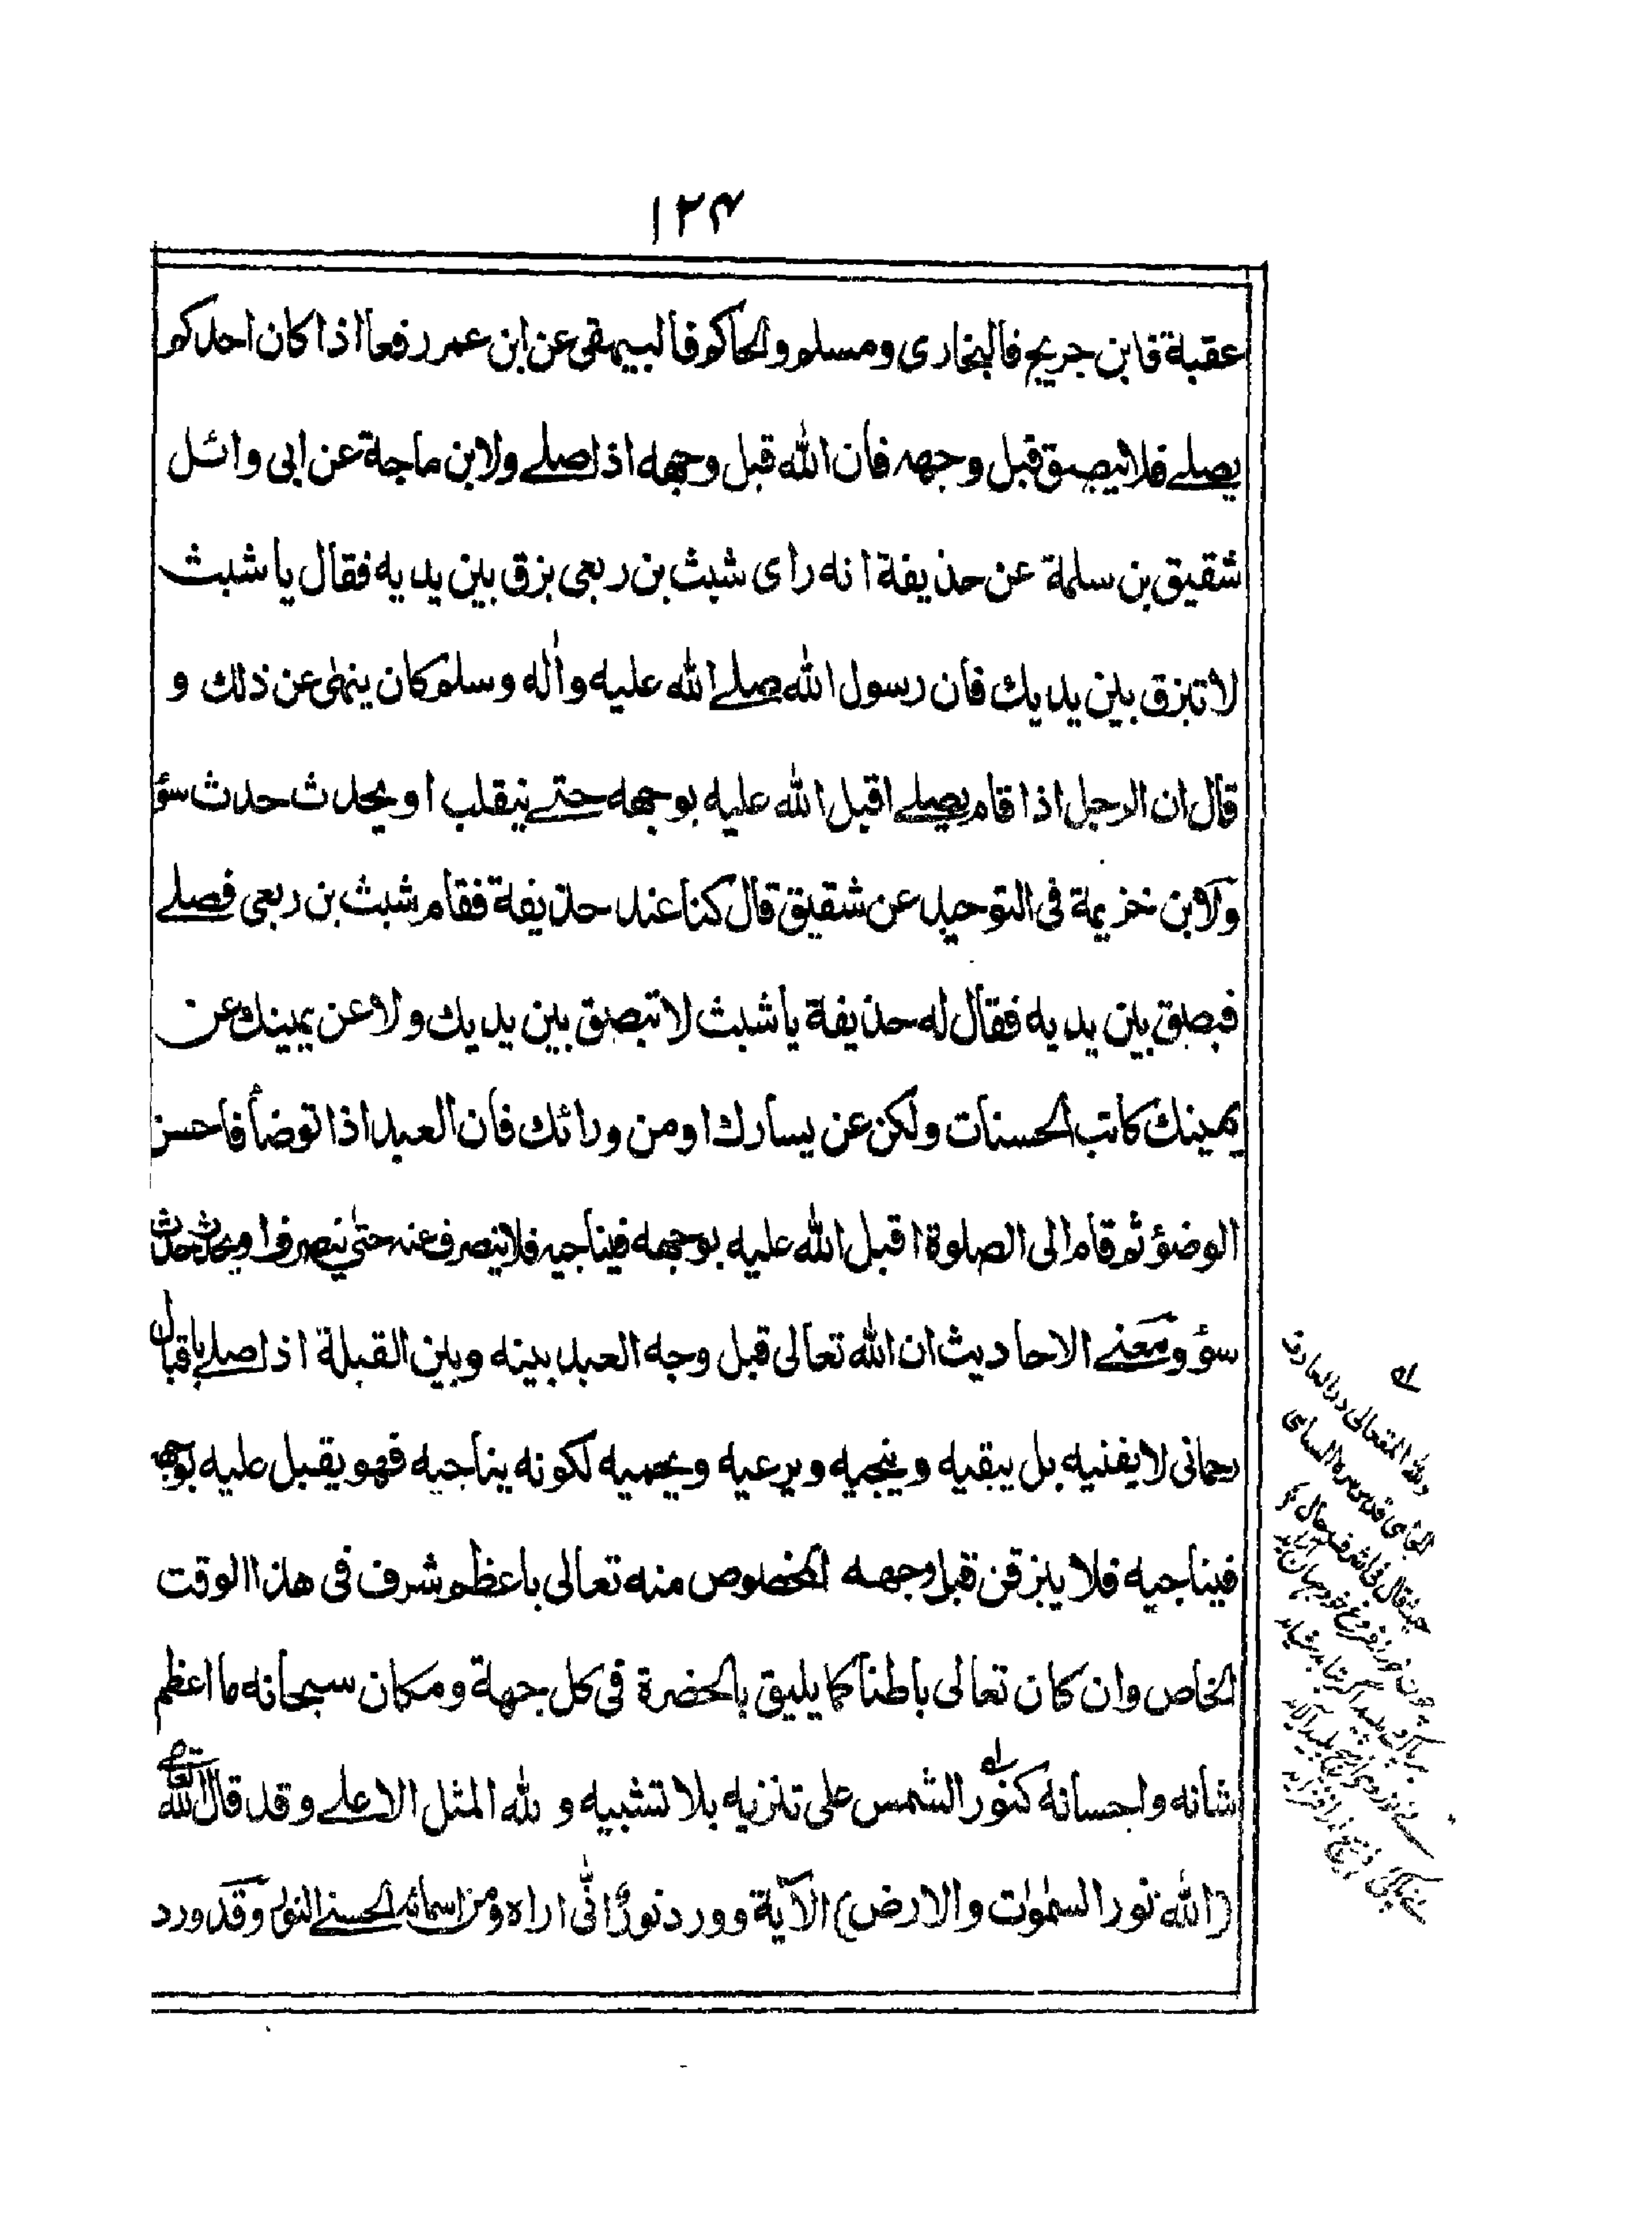 ۱۲۴
عقبة فابن جريج فالبخاری ومسلم والحاکم فالبيهقی عن ابن عمر رفعا اذا کان احدکم
يصلے فلا يبصق قبل وجهه فان الله قبل وجهه اذا صلے ولابن ماجة عن ابی وائل
شقيق بن سلمة عن حذيفة انه رای شبث بن ربعی بزق بين يديه فقال يا شبث
لا تبزق بين يديك فان رسول الله صلے الله عليه وأله وسلم کان ينهی عن ذلك و
قال ان الرجل اذا قام يصلے اقبل الله عليه بوجهه حتے ينقلب او يحدث حدث سؤ
ولابن خزيمة فی التوحيد عن شقيق قال کنا عند حذيفة فقام شبث بن ربعی فصلے
فبصق بين يديه فقال له حذيفة يا شبث لا تبصق بين يديك ولا عن يمينك عن
يمينك کاتب الحسنات ولکن عن يسارك او من ورائك فان العبد اذا توضأ فاحسن
الوضؤ ثم قام الی الصلوة اقبل الله عليه بوجهه فيناجيه فلا ينصرف عنه حتی ينصرف او يحدث حدث
سؤ ومعنے الاحاديث ان الله تعالی قبل وجه العبد بينه وبين القبلة اذا صلے باقبال
رحمانی لا يفنيه بل يبقيه وينجيه ويرعيه ويحميه لکونه يناجيه فهو يقبل عليه بوجهه
فيناجيه فلا يبزقن قبل وجهه المخصوص منه تعالی باعظم شرف فی هذا الوقت
الخاص وان کان تعالی باطنا کما يليق بالحضرة فی کل جهة ومکان سبحانه ما اعظم
شانه واحسانه کنور الشمس علی تنزيه بلا تشبيه و لله المثل الاعلے وقد قال الله تعالی
(الله نور السمٰوٰت والارض) الآية وورد نورٌ انّٰی اراه ومن اسمائه الحسنے النور وقد ورد
له
ولله المتعالی در العارف
الجامی قدس سره السامی